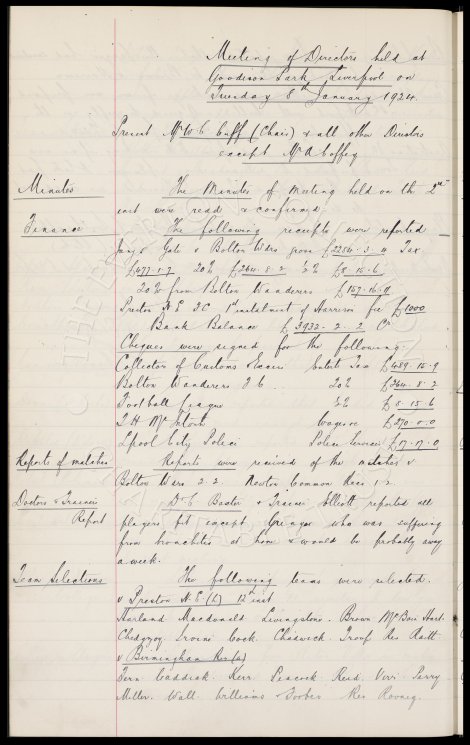 Meeting of Directors held at
Goodison Park, Liverpool on
Tuesday 8th January 1924.
Present Mr W C Cuff (Chair) & all other Directors
except Mr A Coffey
Minutes
The Minutes of Meeting held on the 2nd
inst were read & confirmed
Finance
The following receipts were reported
Jany 5 Gate v Bolton Wdrs gross £2286.3.4 Tax
£477.1.7 20% £264.8.2 ½% £8.15.6
20% from Bolton Wanderers £157.16.9
Preston N E FC 1st instalment of Harrison fee £1000
Bank Balance £3932.2.2 Cr.
Cheques were signed for the following
Collector of Customs Excise Entert Tax £489.15.9
Bolton Wanderers F C 20% £264.8.2
Football League £8.15.6
T H McIntosh Wages &c £270.0.0
Lpool City Police Police Service £17.17.0
Reports of matches
Reports were received of the matches v
Bolton Wdrs 2-2 Newton Common Recs 1-2
Doctors & Trainers
Report
Dr C Baxter & Trainer Elliott reported all
players fit except Grenyer who was suffering
from bronchitis at home & would be probably away
a week.
Team Selections
The following teams were selected.
v Preston N.E. (L) 12th inst
Harland Macdonald Livingstone. Brown McBain Hart
Chedgzoy Irvine Cock. Chadwick Troup Res Raitt
v Birmingham Res (a)
Fern Caddick Kerr Peacock Reid Virr Parry
Miller Wall Williams Forbes Res Rooney